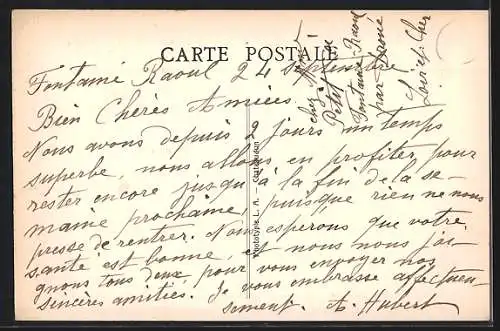 CARTE POSTALE
Fontaine Raoul 24 Septembre
Bien Chères Amies
Nous avons depuis 2 jours un temps
superbe, nous allons en profiter pour
rester encore jusqu'à la fin de la se-
maine prochaine, puisque rien ne nous
presse de rentrer. Nous esperons que votre
santé est bonne, et nous nous joi-
gnons tous deux pour vous envoyer nos
sincères amitiés. Je vous embrasse affectueu-
sement. A. Hubert
chez
Petit
Fontaine-Raoul
par Droué
Loir et Cher
Phototypie L. A. - Châteaudun